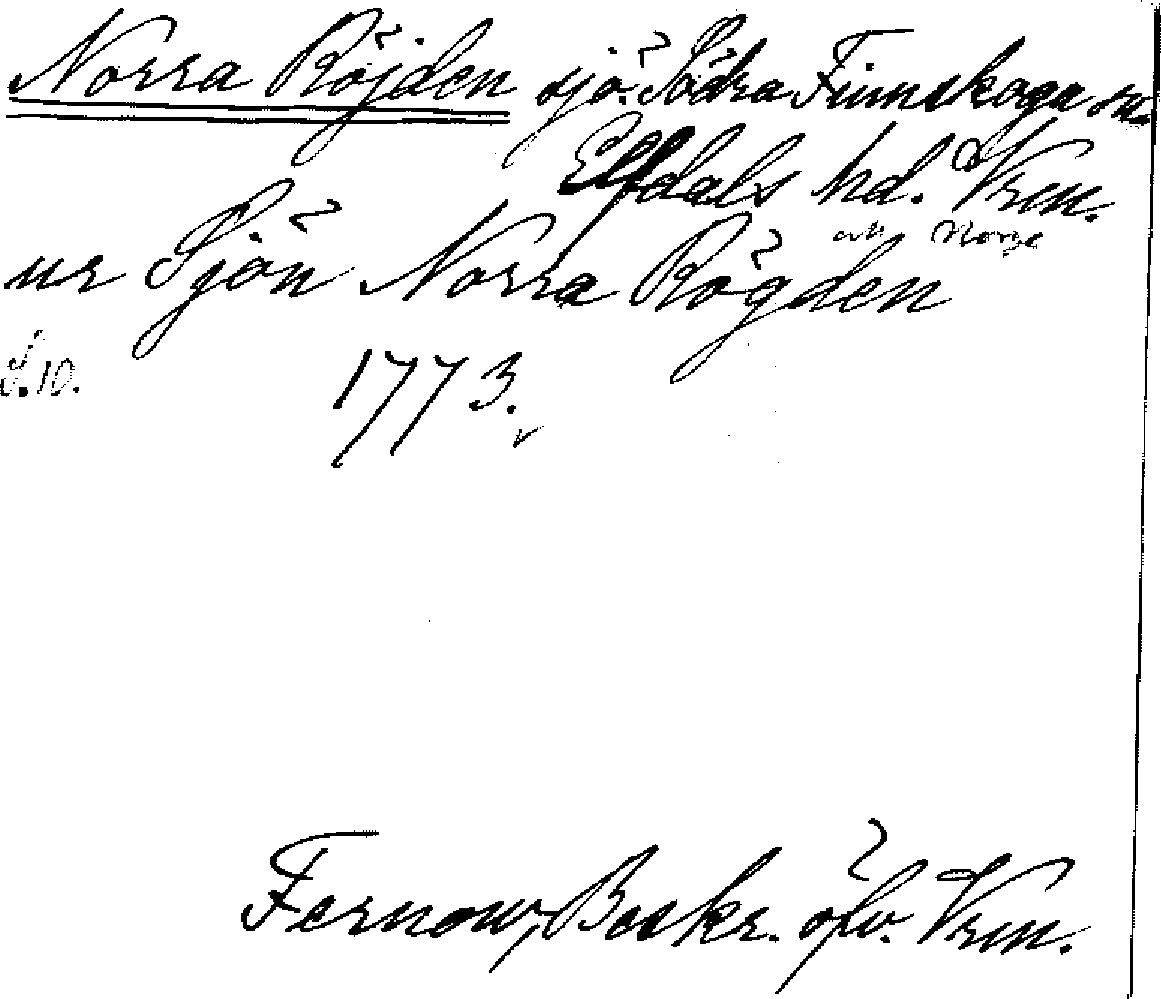 Norra Röjden sjö. Södra Finnskoga sn.
Elfdals hd. Vrm.
och Norge
ur Sjön Norra Rögden
S. 10. 1773.
Fernow, Beskr. öfv. Vrm.